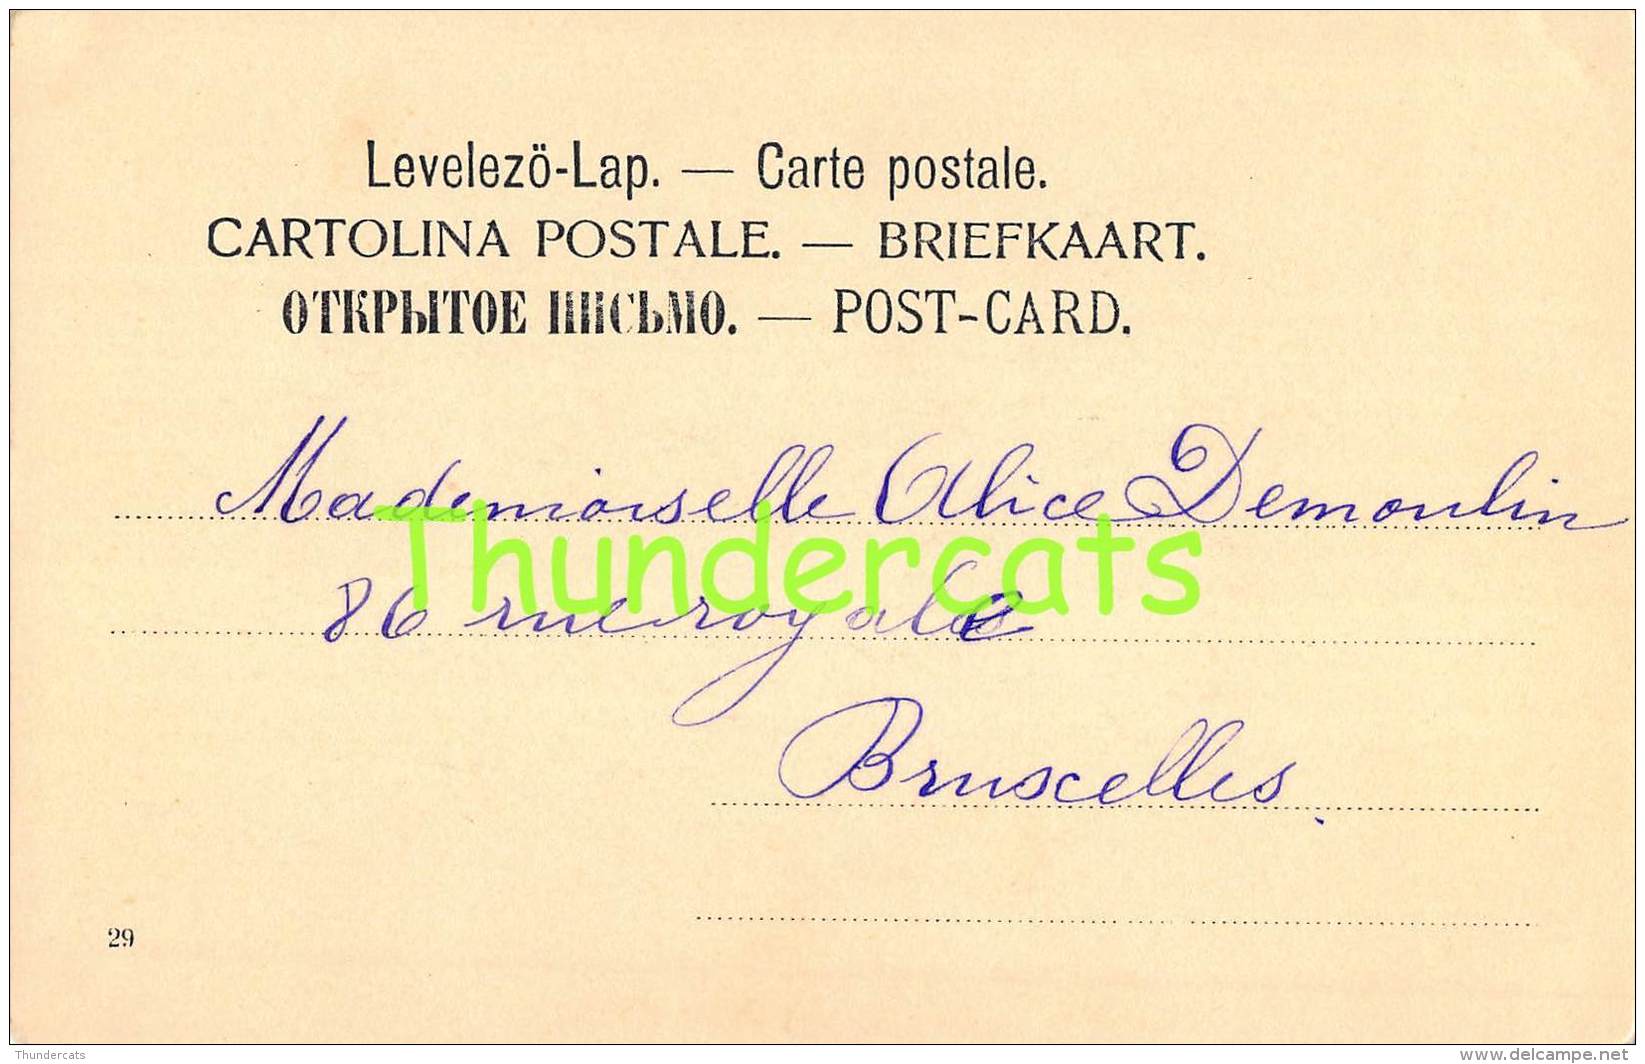 Levelezö-Lap. — Carte postale.
CARTOLINA POSTALE. — BRIEFKAART.
ОТКРЫТОЕ ПИСЬМО. — POST-CARD.
Mademoiselle Alice Demoulin
Thundercats
86 rue royale
Bruxelles
29
Thundercats
www.delcampe.net